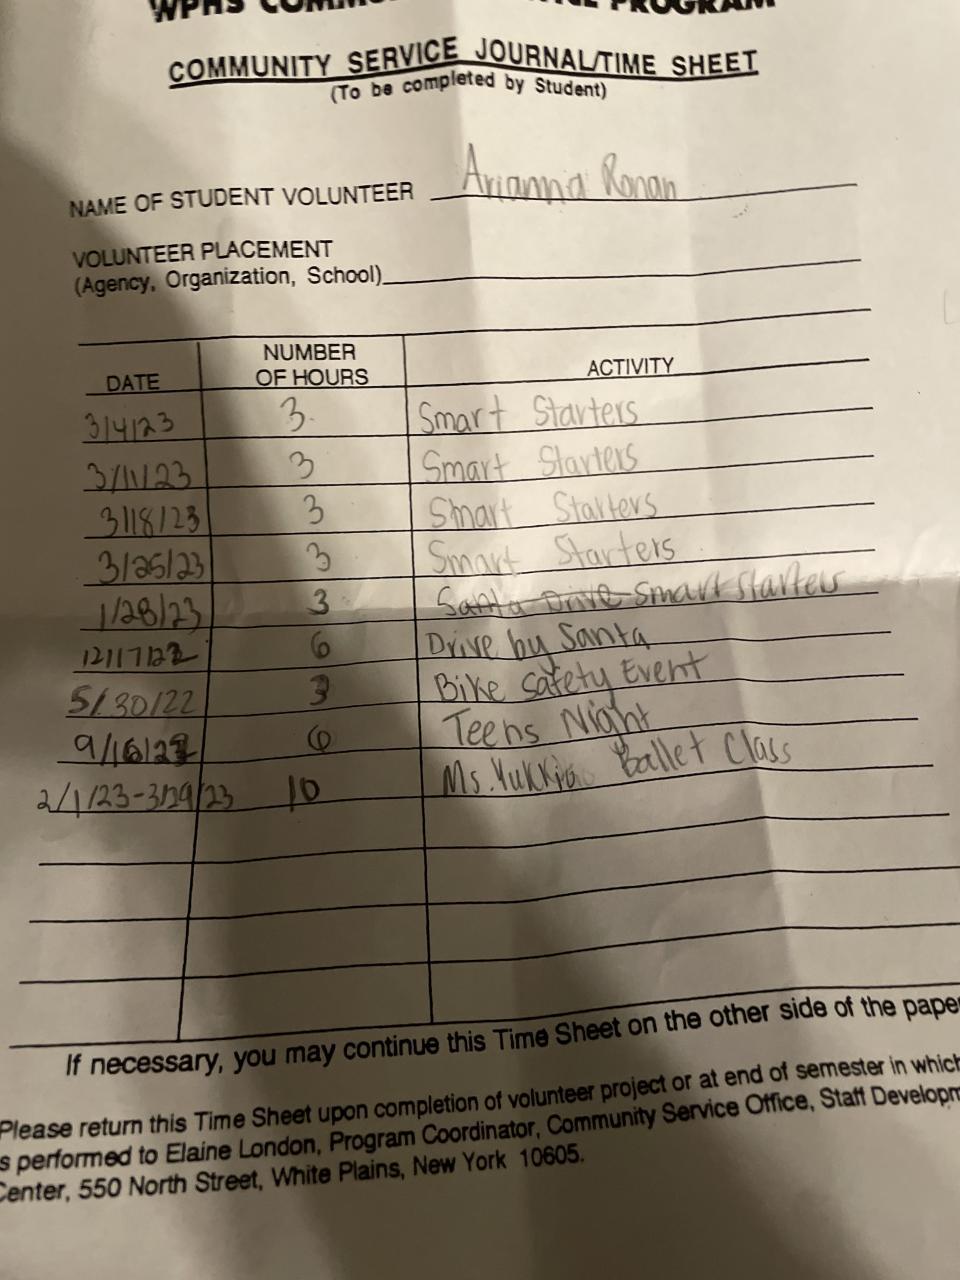 WPHS COMMUNITY SERVICE PROGRAM
COMMUNITY SERVICE JOURNAL/TIME SHEET
(To be completed by Student)
NAME OF STUDENT VOLUNTEER Arianna Ronan
VOLUNTEER PLACEMENT
(Agency, Organization, School)
DATE NUMBER OF HOURS ACTIVITY
3/4/23 3 Smart Starters
3/11/23 3 Smart Starters
3/18/23 3 Smart Starters
3/25/23 3 Smart Starters
1/28/23 3 Santa Drive Smart Starters
12/17/22 6 Drive by Santa
5/30/22 3 Bike Safety Event
9/16/22 6 Teens Night
2/1/23-3/29/23 10 Ms. Ballet Class
If necessary, you may continue this Time Sheet on the other side of the paper
Please return this Time Sheet upon completion of volunteer project or at end of semester in which
s performed to Elaine London, Program Coordinator, Community Service Office, Staff Developm
Center, 550 North Street, White Plains, New York 10605.